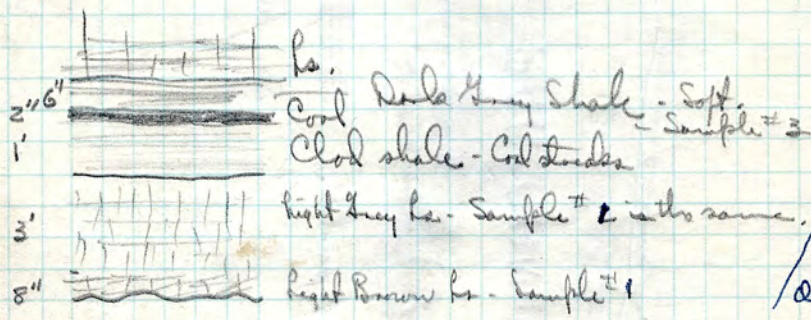 Ls.
6" Dark Grey Shale - Soft.
2" Coal - Sample #3
1' Clod shale - Coal streaks
3' Light Grey Ls - Sample # is the same.
8" Light Brown Ls - Sample #1